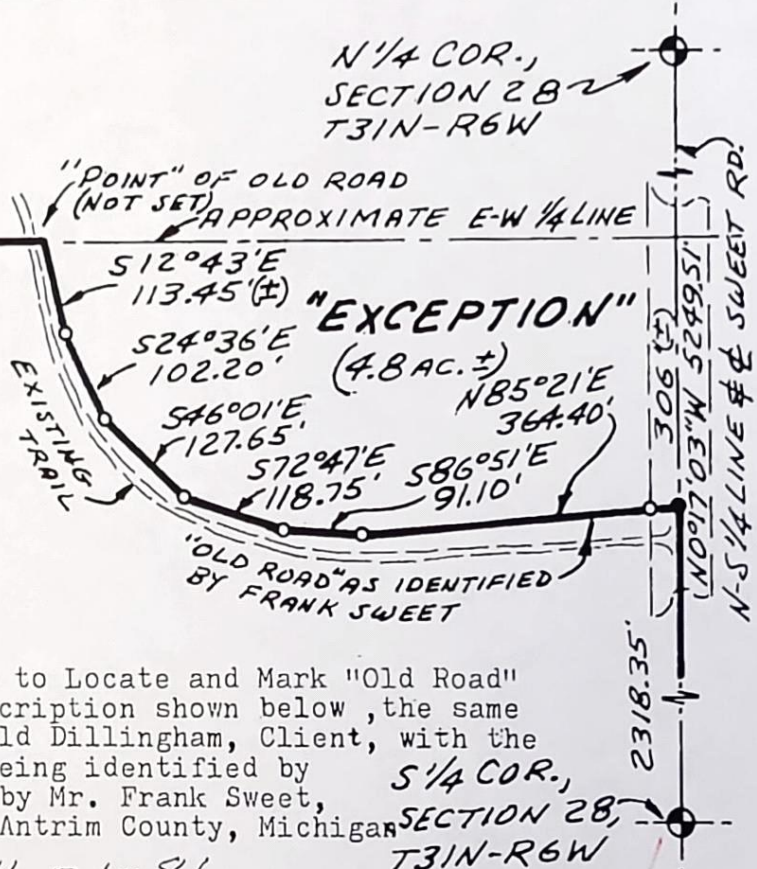 N 1/4 COR.,
SECTION 28
T31N-R6W
"POINT" OF OLD ROAD
(NOT SET)
APPROXIMATE E-W 1/4 LINE
S12°43'E
113.45'(±)
"EXCEPTION"
(4.8 AC. ±)
S24°36'E
102.20'
N85°21'E
364.40'
S46°01'E
127.65'
S72°47'E
118.75'
S86°51'E
91.10'
EXISTING
TRAIL
"OLD ROAD" AS IDENTIFIED
BY FRANK SWEET
306'(±)
(N0°17'03"W 5249.51'
N-S 1/4 LINE & ℄ SWEET RD.
2318.35'
to Locate and Mark "Old Road"
cription shown below ,the same
ld Dillingham, Client, with the
eing identified by
by Mr. Frank Sweet,
Antrim County, Michigan
S 1/4 COR.,
SECTION 28,
T31N-R6W